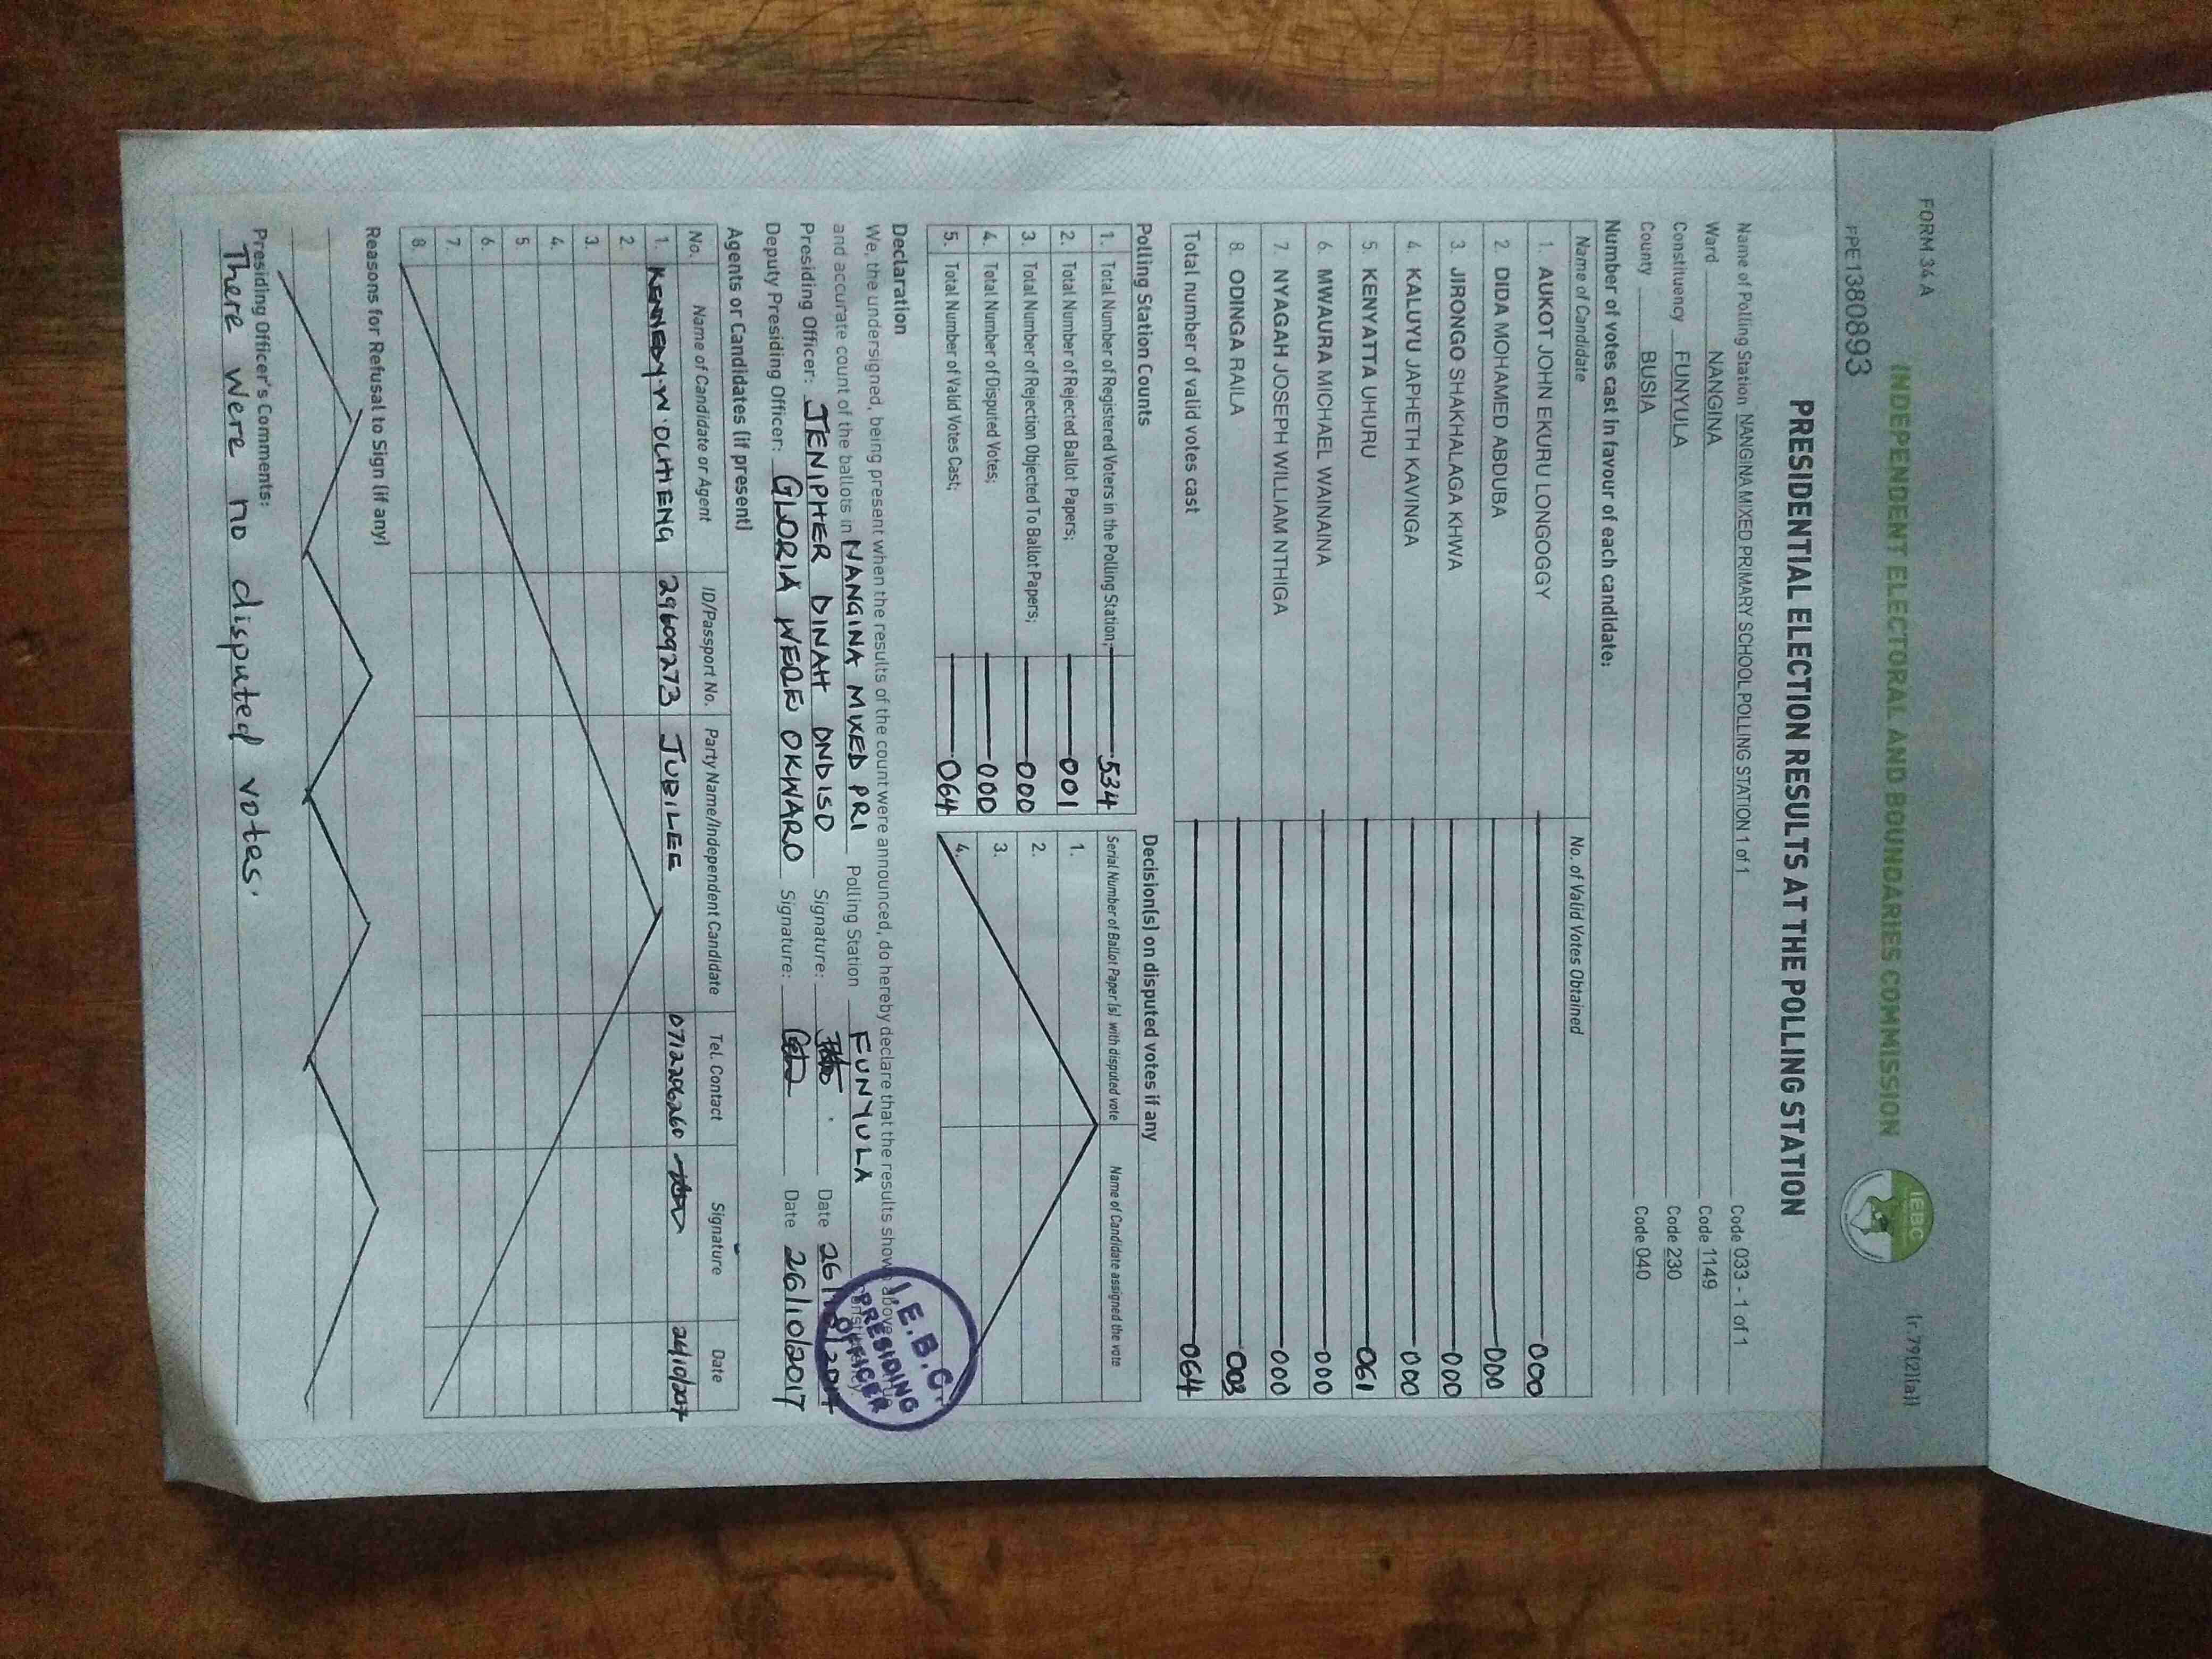 FORM 34 A
INDEPENDENT ELECTORAL AND BOUNDARIES COMMISSION
IEBC
(r.79(2)(a))
PE1380893
PRESIDENTIAL ELECTION RESULTS AT THE POLLING STATION
Name of Polling Station NANGINA MIXED PRIMARY SCHOOL POLLING STATION 1 of 1 Code 033 - 1 of 1
Ward NANGINA Code 1149
Constituency FUNYULA Code 230
County BUSIA Code 040
Number of votes cast in favour of each candidate:
Name of Candidate No. of Valid Votes Obtained
1. AUKOT JOHN EKURU LONGOGGY 000
2. DIDA MOHAMED ABDUBA 000
3. JIRONGO SHAKHALAGA KHWA 000
4. KALUYU JAPHETH KAVINGA 000
5. KENYATTA UHURU 061
6. MWAURA MICHAEL WAINAINA 000
7. NYAGAH JOSEPH WILLIAM NTHIGA 000
8. ODINGA RAILA 003
Total number of valid votes cast 064
Polling Station Counts
1. Total Number of Registered Voters in the Polling Station; 534
2. Total Number of Rejected Ballot Papers; 001
3. Total Number of Rejection Objected To Ballot Papers; 000
4. Total Number of Disputed Votes; 000
5. Total Number of Valid Votes Cast; 064
Decision(s) on disputed votes if any
Serial Number of Ballot Paper (s) with disputed vote Name of Candidate assigned the vote
1.
2.
3.
4.
Declaration
We, the undersigned, being present when the results of the count were announced, do hereby declare that the results shown above
and accurate count of the ballots in NANGINA MIXED PRI Polling Station FUNYULA
Presiding Officer: JENIPHER DINAH ONDISO Signature: Date 26/10/2017
Deputy Presiding Officer: GLORIA WERE OKWARO Signature: Date 26/10/2017
I.E.B.C.
PRESIDING
OFFICER
Agents or Candidates (if present)
No. Name of Candidate or Agent ID/Passport No. Party Name/Independent Candidate Tel. Contact Signature Date
1. KENNEDY W. OCHIENG 29609273 JUBILEE 0712206260 26/10/2017
2.
3.
4.
5.
6.
7.
8.
Reasons for Refusal to Sign (if any)
Presiding Officer's Comments:
There were no disputed votes.